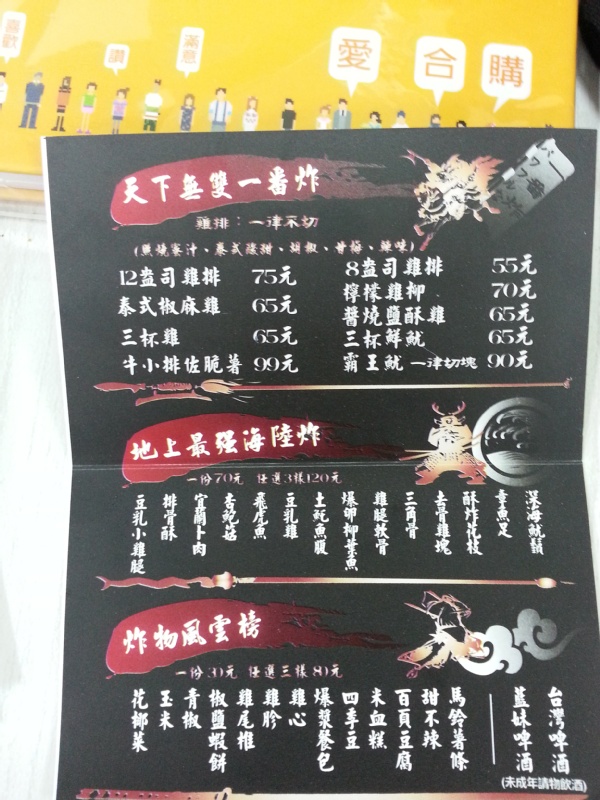 喜歡
讚
滿意
愛
合
購
天下無雙一番炸
雞排：一律不切
(照燒蜜汁、泰式酸甜、胡椒、甘梅、辣味)
12盎司雞排 75元
8盎司雞排 55元
泰式椒麻雞 65元
檸檬雞柳 70元
醬燒鹽酥雞 65元
三杯雞 65元
三杯鮮魷 65元
牛小排佐脆薯 99元
霸王魷 一律切塊 90元
地上最强海陸炸
一份70元 任選3樣120元
深海魷鬚
章魚足
酥炸花枝
去骨雞塊
三角骨
雞腿軟骨
爆卵柳葉魚
土魠魚腹
豆乳雞
飛虎魚
杏鮑菇
宜蘭卜肉
排骨酥
豆乳小雞腿
炸物風雲榜
一份30元 任選三樣80元
台灣啤酒
藍妹啤酒
馬鈴薯條
甜不辣
百頁豆腐
米血糕
四季豆
爆漿餐包
雞心
雞胗
雞尾椎
椒鹽蝦餅
青椒
玉米
花椰菜
(未成年請物飲酒)